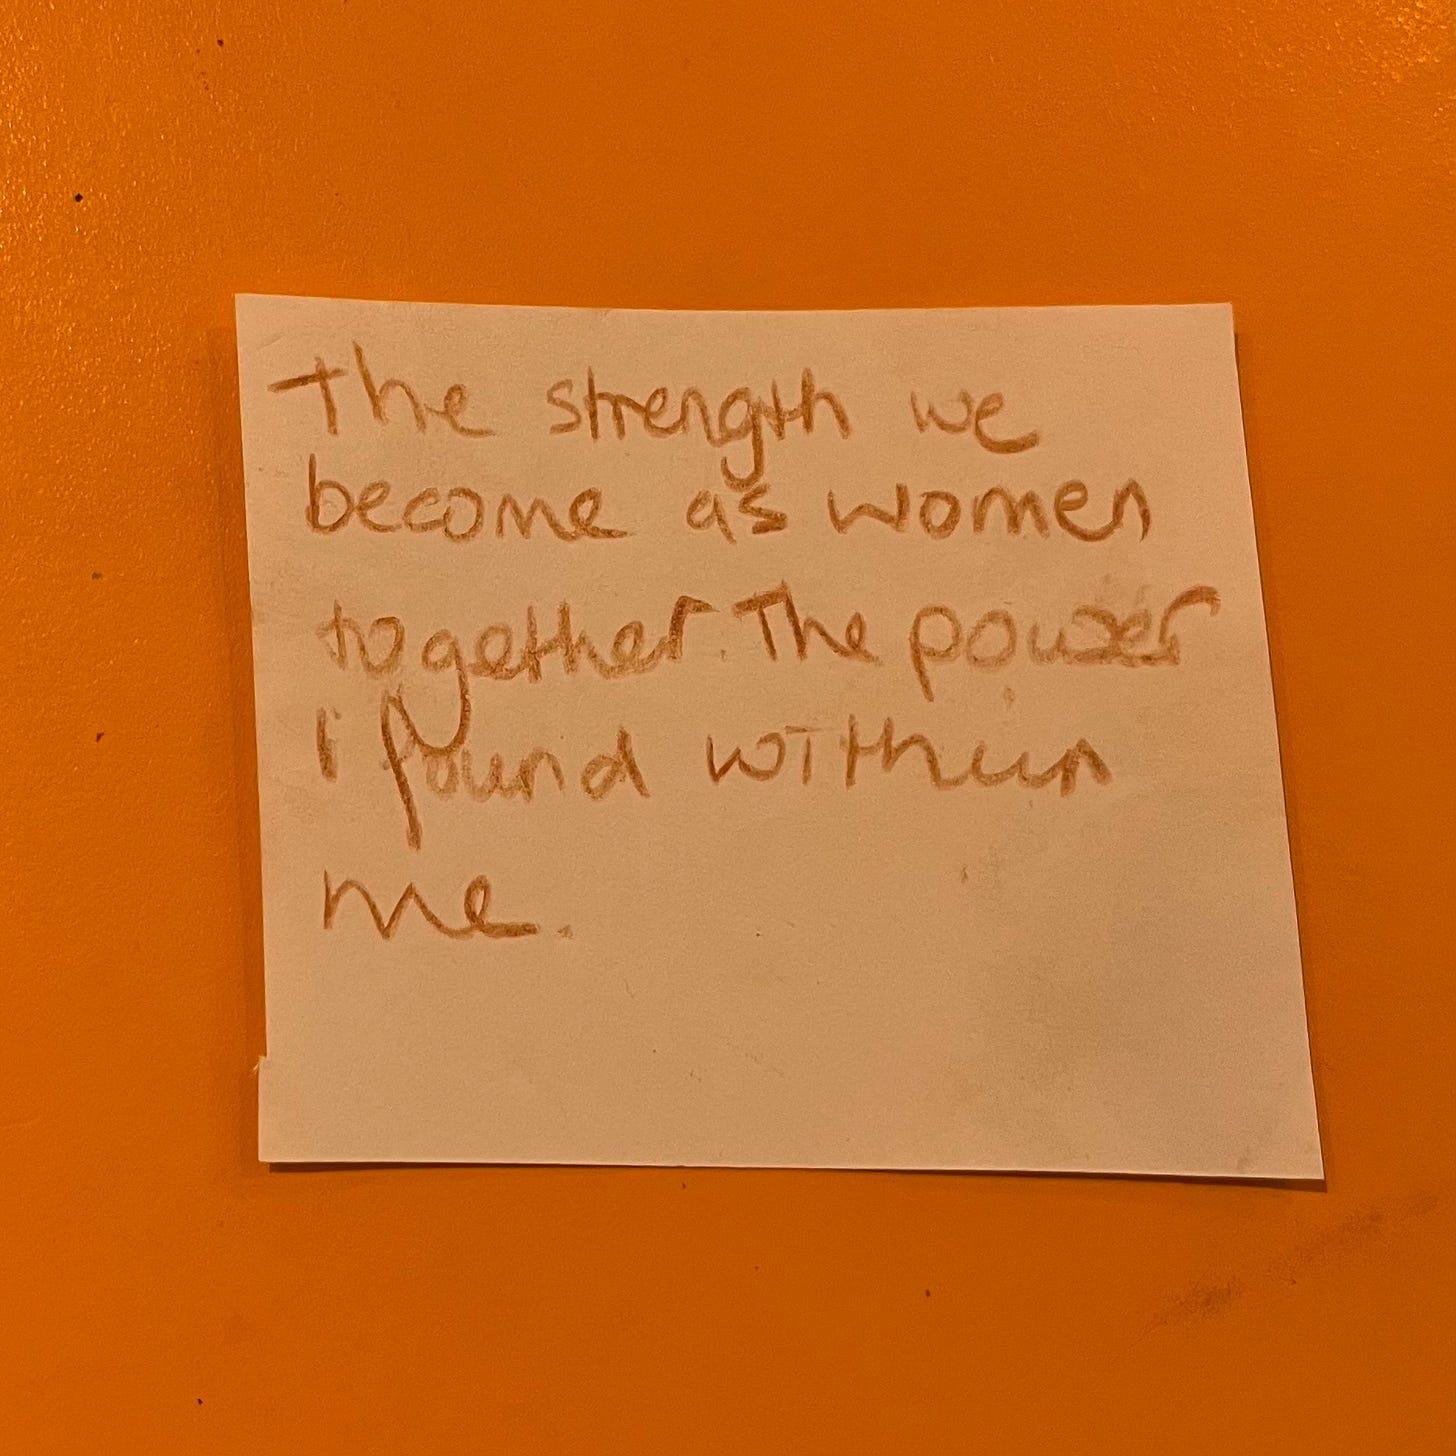 The strength we
become as women
together. The power
I found within
me.